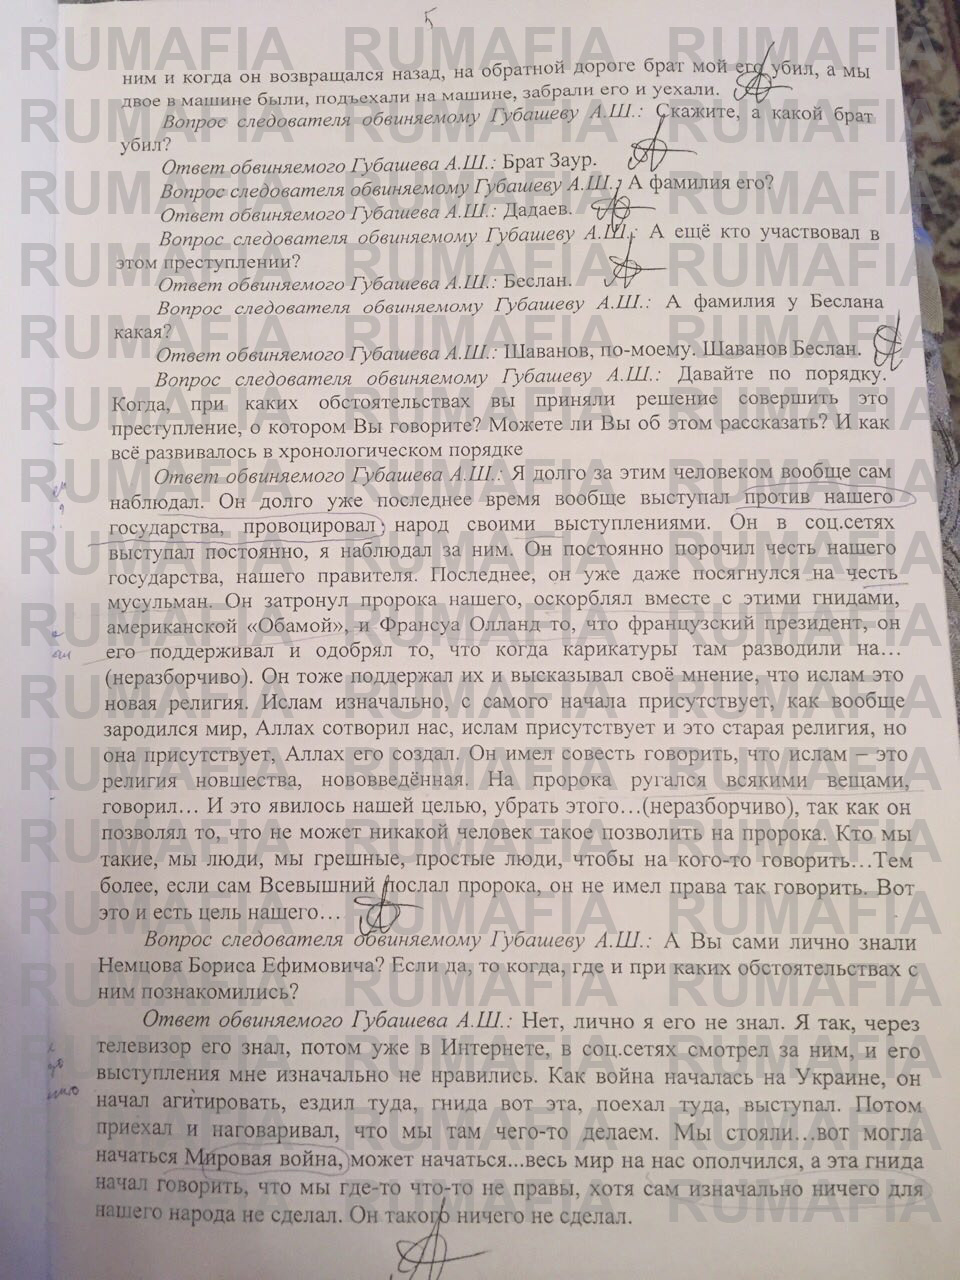 5
ним и когда он возвращался назад, на обратной дороге брат мой его убил, а мы
двое в машине были, подъехали на машине, забрали его и уехали.
Вопрос следователя обвиняемому Губашеву А.Ш.: Скажите, а какой брат
убил?
Ответ обвиняемого Губашева А.Ш.: Брат Заур.
Вопрос следователя обвиняемому Губашеву А.Ш.: А фамилия его?
Ответ обвиняемого Губашева А.Ш.: Дадаев.
Вопрос следователя обвиняемому Губашеву А.Ш.: А ещё кто участвовал в
этом преступлении?
Ответ обвиняемого Губашева А.Ш.: Беслан.
Вопрос следователя обвиняемому Губашеву А.Ш.: А фамилия у Беслана
какая?
Ответ обвиняемого Губашева А.Ш.: Шаванов, по-моему. Шаванов Беслан.
Вопрос следователя обвиняемому Губашеву А.Ш.: Давайте по порядку.
Когда, при каких обстоятельствах вы приняли решение совершить это
преступление, о котором Вы говорите? Можете ли Вы об этом рассказать? И как
всё развивалось в хронологическом порядке
Ответ обвиняемого Губашева А.Ш.: Я долго за этим человеком вообще сам
наблюдал. Он долго уже последнее время вообще выступал против нашего
государства, провоцировал народ своими выступлениями. Он в соц.сетях
выступал постоянно, я наблюдал за ним. Он постоянно порочил честь нашего
государства, нашего правителя. Последнее, он уже даже посягнулся на честь
мусульман. Он затронул пророка нашего, оскорблял вместе с этими гнидами,
американской «Обамой», и Франсуа Олланд то, что французский президент, он
его поддерживал и одобрял то, что когда карикатуры там разводили на…
(неразборчиво). Он тоже поддержал их и высказывал своё мнение, что ислам это
новая религия. Ислам изначально, с самого начала присутствует, как вообще
зародился мир, Аллах сотворил нас, ислам присутствует и это старая религия, но
она присутствует, Аллах его создал. Он имел совесть говорить, что ислам – это
религия новшества, нововведённая. На пророка ругался всякими вещами,
говорил… И это явилось нашей целью, убрать этого…(неразборчиво), так как он
позволял то, что не может никакой человек такое позволить на пророка. Кто мы
такие, мы люди, мы грешные, простые люди, чтобы на кого-то говорить…Тем
более, если сам Всевышний послал пророка, он не имел права так говорить. Вот
это и есть цель нашего…
Вопрос следователя обвиняемому Губашеву А.Ш.: А Вы сами лично знали
Немцова Бориса Ефимовича? Если да, то когда, где и при каких обстоятельствах с
ним познакомились?
Ответ обвиняемого Губашева А.Ш.: Нет, лично я его не знал. Я так, через
телевизор его знал, потом уже в Интернете, в соц.сетях смотрел за ним, и его
выступления мне изначально не нравились. Как война началась на Украине, он
начал агитировать, ездил туда, гнида вот эта, поехал туда, выступал. Потом
приехал и наговаривал, что мы там чего-то делаем. Мы стояли…вот могла
начаться Мировая война, может начаться...весь мир на нас ополчился, а эта гнида
начал говорить, что мы где-то что-то не правы, хотя сам изначально ничего для
нашего народа не сделал. Он такого ничего не сделал.